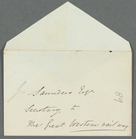 J. Saunders Esqr
Secretary to
The Great Western railway
68